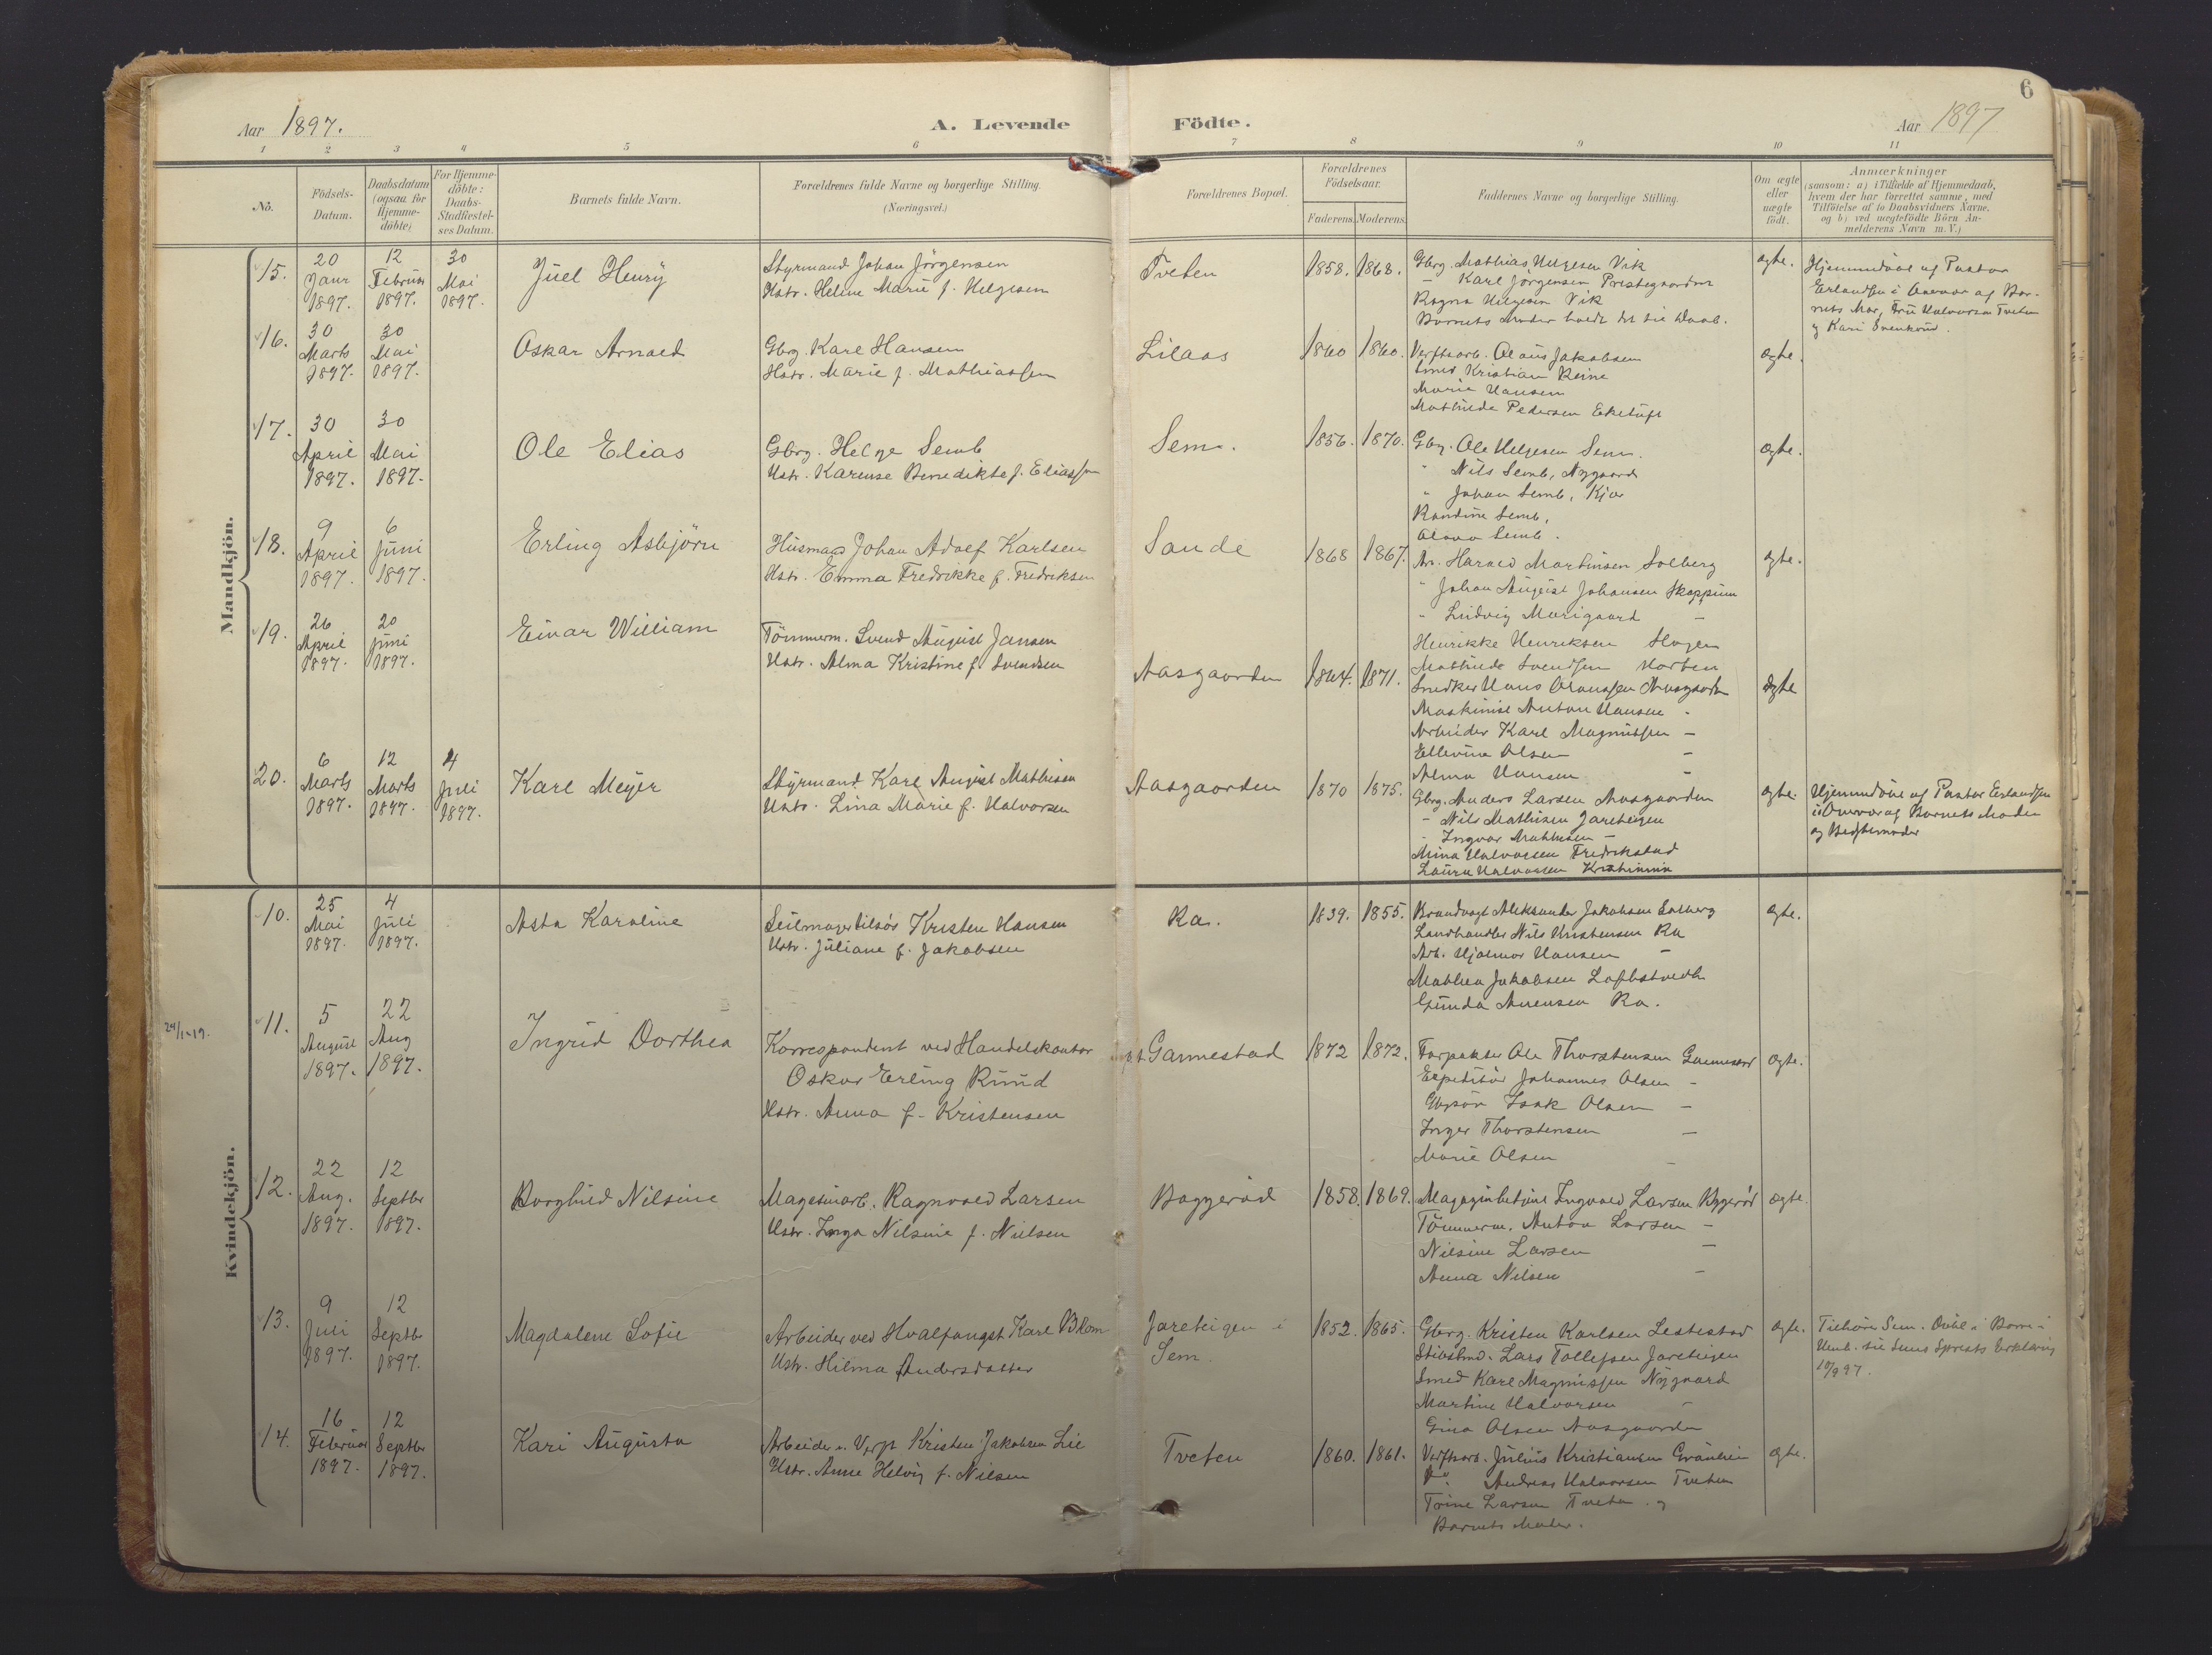 Aar 1897.
A. Levende Födte.
Aar 1897
6
1 2 3 4 5 6 7 8 9 10 11
No.
Födsels-Datum.
Daabsdatum (ogsaa for Hjemme-döbte)
For Hjemme-döbte: Daabs-Stadfæstel-ses Datum.
Barnets fulde Navn.
Forældrenes fulde Navne og borgerlige Stilling. (Næringsvei.)
Forældrenes Bopæl.
Forældrenes Födselsaar.
Faderens. Moderens.
Faddernes Navne og borgerlige Stilling.
Om ægte eller uægte født.
Anmærkninger
(saasom: a) i Tilfælde af Hjemmedaab,
hvem der har forrettet samme, med
Tilföielse af to Daabsvidners Navne,
og b) ved uægtefödte Börn An-
melderens Navn m. V.)
Mandkjön.
15. 20 Janr 1897. 12 Februar 1897. 30 Mai 1897.
Juel Henry
Styrmand Johan Jörgensen
Hstr. Helene Marie f. Helgesen
Tveten
1858. 1868.
Gbrg. Mathias Helgesen Vik
– Karl Jörgensen Prestegaarden
Ragna Helgesen Vik
Barnets Moder holdt det til Daab.
ægte.
Hjemmedöbt af Pastor
Erlandsen i Overvær af Bar-
nets Mor, Fru Halvorsen Tveten
og Kari
16. 30 Marts 1897. 30 Mai 1897.
Oskar Arnold
Gbrg. Karl Hansen
Hstr. Marie f. Mathiassen
Lilaas
1860 1860.
Verftsarb. Olaus Jakobsen
Smed Kristian Reine
Marie Hansen
Mathilde Pedersen
ægte.
17. 30 April 1897. 30 Mai 1897.
Ole Elias
Gbrg. Helge Semb
Hstr. Karense Benedikte f. Eliassen
Sem.
1856. 1870.
Gbrg. Ole Helgesen Sem.
" Nils Semb, Nygaard
" Johan Semb, Kjær
Randine Semb,
Olava Semb.
ægte.
18. 9 April 1897. 6 Juni 1897.
Erling Asbjörn
Husmand Johan Adolf Karlsen
Hstr. Emma Fredrikke f. Fredriksen
Sande
1868 1867.
Arb. Harald Martinsen Solberg
" Johan August Johansen Skoppum
" Ludvig Marigaard –
Henrikke Henriksen Hagen
Mathilde Svendsen Horten
ægte.
19. 26 April 1897. 20 Juni 1897.
Einar William
Tömmerm. Svend August Jansen
Hstr. Alma Kristine f. Svendsen
Aasgaarden
1864. 1871.
Snedker Hans Aasgaarden
Maskinist Anton Hansen –
Arbeider Karl Magnussen –
Ellevine Olsen –
Alma Hansen –
ægte
20. 6 Marts 1897. 12 Marts 1897. 4 Juli 1897.
Karl Meyer
Styrmand Karl August Mathisen
Hstr. Lina Marie f. Halvorsen
Aasgaarden
1870 1875.
Gbrg. Anders Larsen Aasgaarden
– Nils Mathisen Jareteigen
– Ingvar Mathisen –
Mina Halvorsen Fredrikstad
Laura Halvorsen Kristiania
ægte.
Hjemmedöbt af Pastor Erlandsen
i Overvær af Barnets Moder
og Bedstemoder
Kvindekjön.
10. 25 Mai 1897. 4 Juli 1897.
Asta Karoline
Seilmager tilsös Kristen Hansen
Hstr. Juliane f. Jakobsen
Ra.
1839. 1855.
Brandvagt Aleksander Jakobsen Solberg
Landhandler Nils Kristensen Ra
Arb. Hjalmar Hansen –
Mathea Jakobsen
Gunda Ra.
ægte.
24/1-19.
11. 5 August 1897. 22 Aug 1897.
Ingrid Dorthea
Korrespondent ved Handelskontor
Oskar Erling Ruud
Hstr. Anna f. Kristensen
p.t. Gannestad
1872 1872.
Forpakter Ole Thorstensen Gannestad
Expeditör Johannes Olsen –
Gbrsön Isak Olsen –
Inger Thorstensen –
Marie Olsen –
ægte.
12. 22 Aug. 1897. 12 Septbr 1897.
Borghild Nilsine
Magasinarb. Ragnvald Larsen
Hstr. Inga Nilsine f. Nielsen
Baggeröd
1858. 1869.
Magazinbetjent Ingvald Larsen Byggeröd
Tömmerm. Anton Larsen –
Nilsine Larsen –
Anna Nilsen –
ægte.
13. 9 Juli 1897. 12 Septbr 1897.
Magdalene Sofie
Arbeider ved Hvalfangst Karl Blom
Hstr. Hilma Andersdatter
Jareteigen i
Sem.
1852. 1865.
Gbrg. Kristen Karlsen Lestestad
Lars Tollefsen Jareteigen
Smed Karl Magnussen Nygaard
Martine Halvorsen –
Gina Olsen Aasgaarden
ægte.
Tilhörer Sem. Döbt i Borre i
Henh. til Sems Sprests Erklæring
10/9 97.
14. 16 Februar 1897. 12 Septbr 1897.
Kari Augusta
Arbeider v. Verft Kristen Jakobsen Lie
Hstr. Anne Helvig f. Nilsen
Tveten
1860. 1861.
Verftsarb. Julius Kristiansen
Do. Andreas Halvorsen Tveten
Trine Larsen Tveten og
Barnets Moder.
ægte.